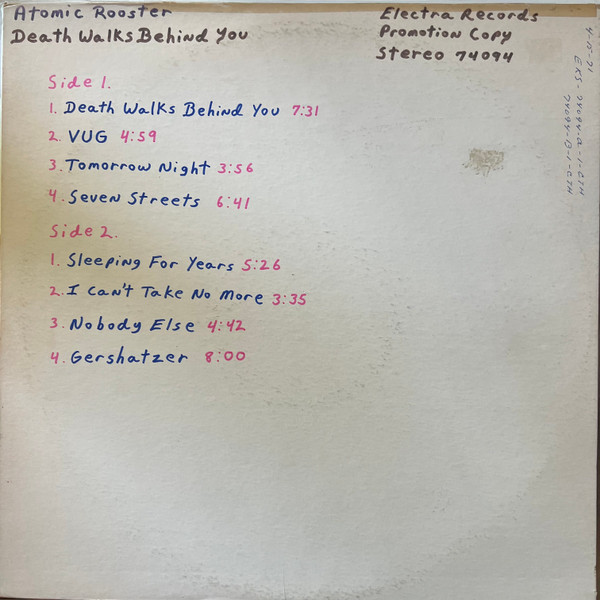 Atomic Rooster
Death Walks Behind You
Electra Records
Promotion Copy
Stereo 74094
4-15-71
EKS-74094-A-1-CTH
74094-B-1-CTH
Side 1.
1. Death Walks Behind You 7:31
2. VUG 4:59
3. Tomorrow Night 3:56
4. Seven Streets 6:41
Side 2.
1. Sleeping For Years 5:26
2. I Can't Take No More 3:35
3. Nobody Else 4:42
4. Gershatzer 8:00